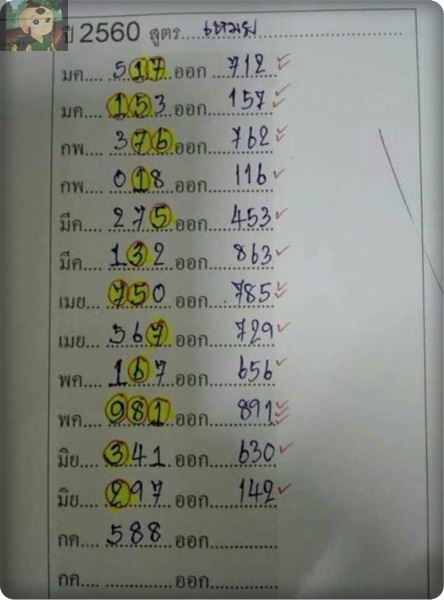 ปี 2560 สูตร....เหมย....
มค.... 517 ออก 712
มค.... 153 ออก 157
กพ.... 376 ออก 762
กพ.... 018 ออก 116
มีค.... 275 ออก 453
มีค.... 132 ออก 863
เมย... 750 ออก 785
เมย... 567 ออก 729
พค.... 167 ออก 656
พค.... 981 ออก 891
มิย.... 341 ออก 630
มิย.... 297 ออก 142
กค.... 588 ออก..............
กค.... .............. ออก..............